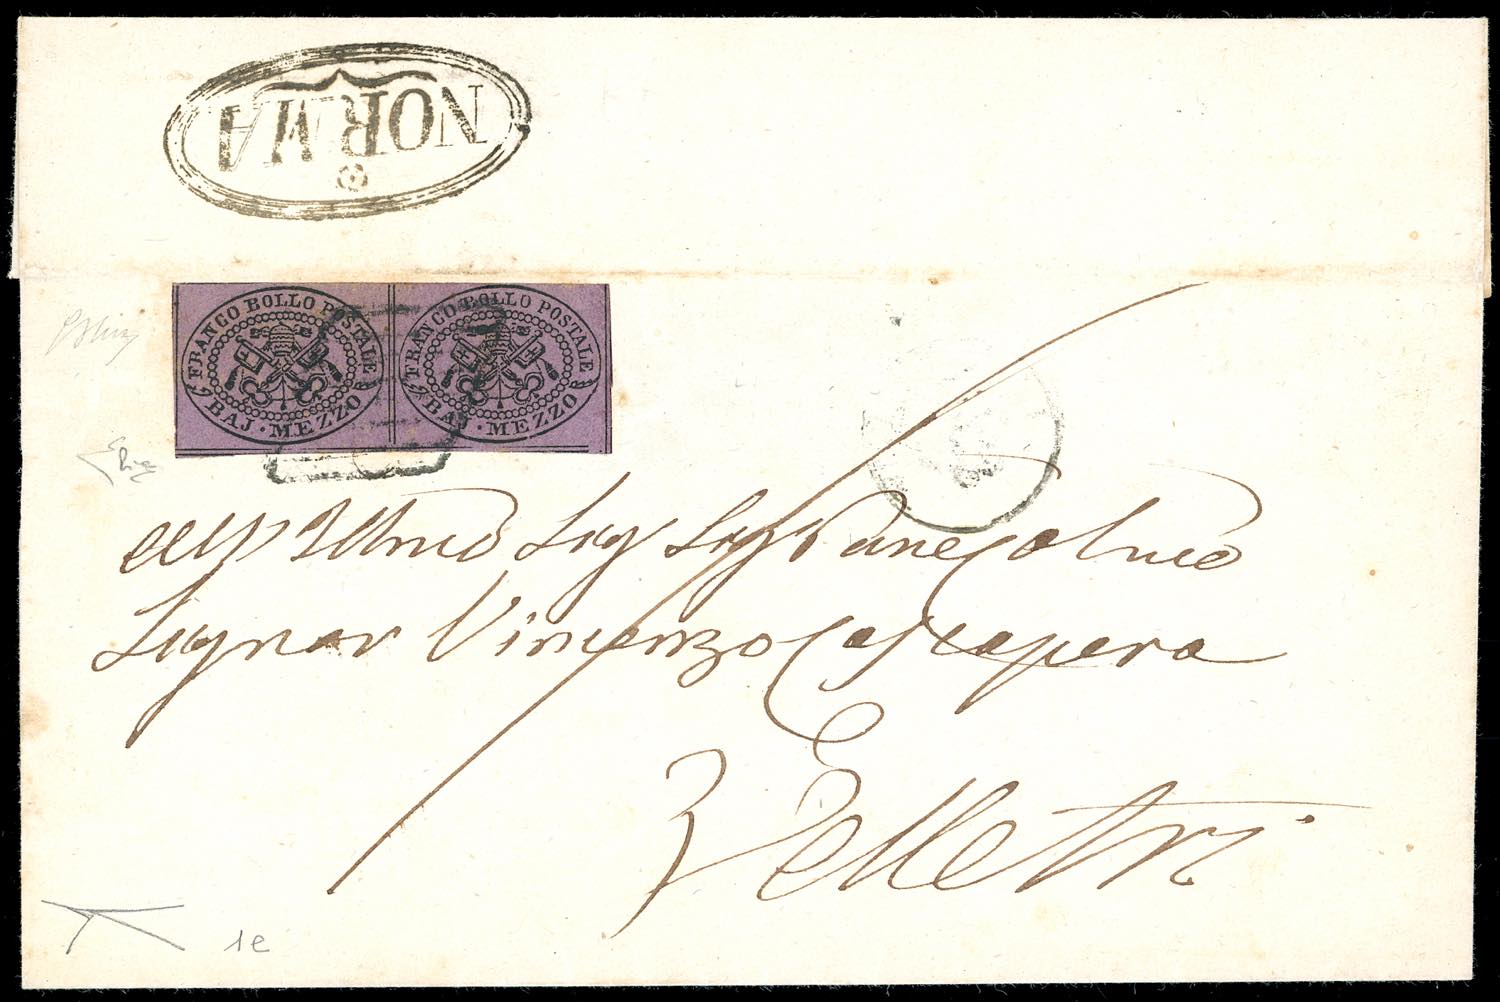 NORMA
FRANCO BOLLO POSTALE
BAJ. MEZZO
FRANCO BOLLO POSTALE
BAJ. MEZZO
Sig Sig Pne Colmo
Signor Vincenzo Cascapera
Velletri
1e